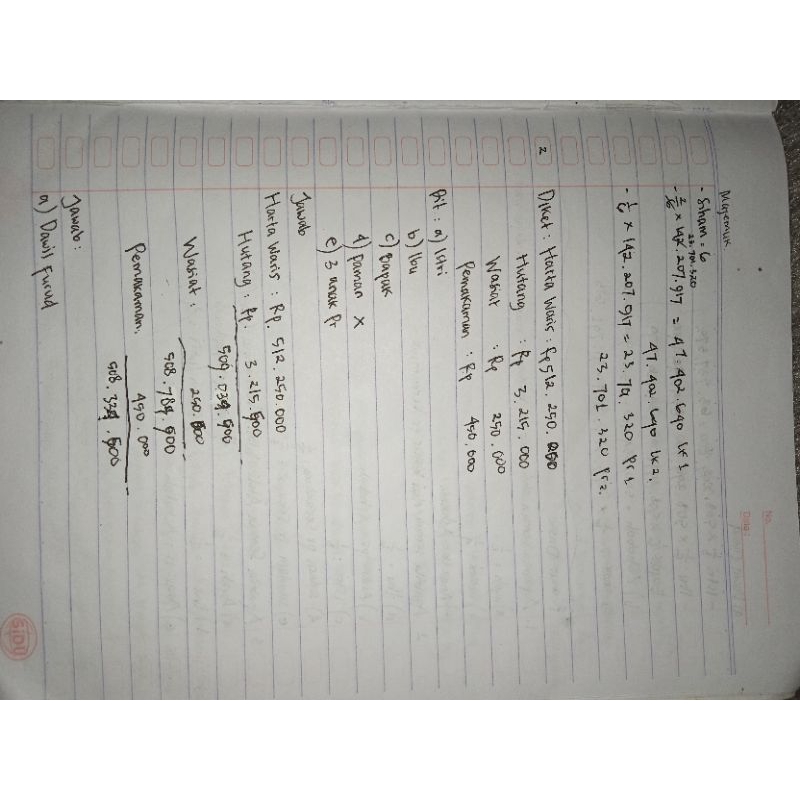 No.
Date.
Majemuk
- Siham = 6
23.701.320
- 2/6 x 142.207.917 = 47.402.640 lk 1
47.402.640 lk 2.
- 1/6 x 142.207.917 = 23.70.320 pr 1
23.701.320 pr 2.
2 Diket : Harta Waris : Rp 512.250.000
Hutang : Rp 3.215.000
Wasiat : Rp 250.000
Pemakaman : Rp 450.000
Dit : a) Istri
b) Ibu
c) Bapak
d) Paman X
e) 3 anak Pr
Jawab
Harta Waris : Rp. 512.250.000
Hutang : Rp. 3.215.500
509.034.500
Wasiat : 250.000
508.784.500
Pemakaman. 450.000
508.334.500
Jawab :
a) Dawil Furud
SIDU